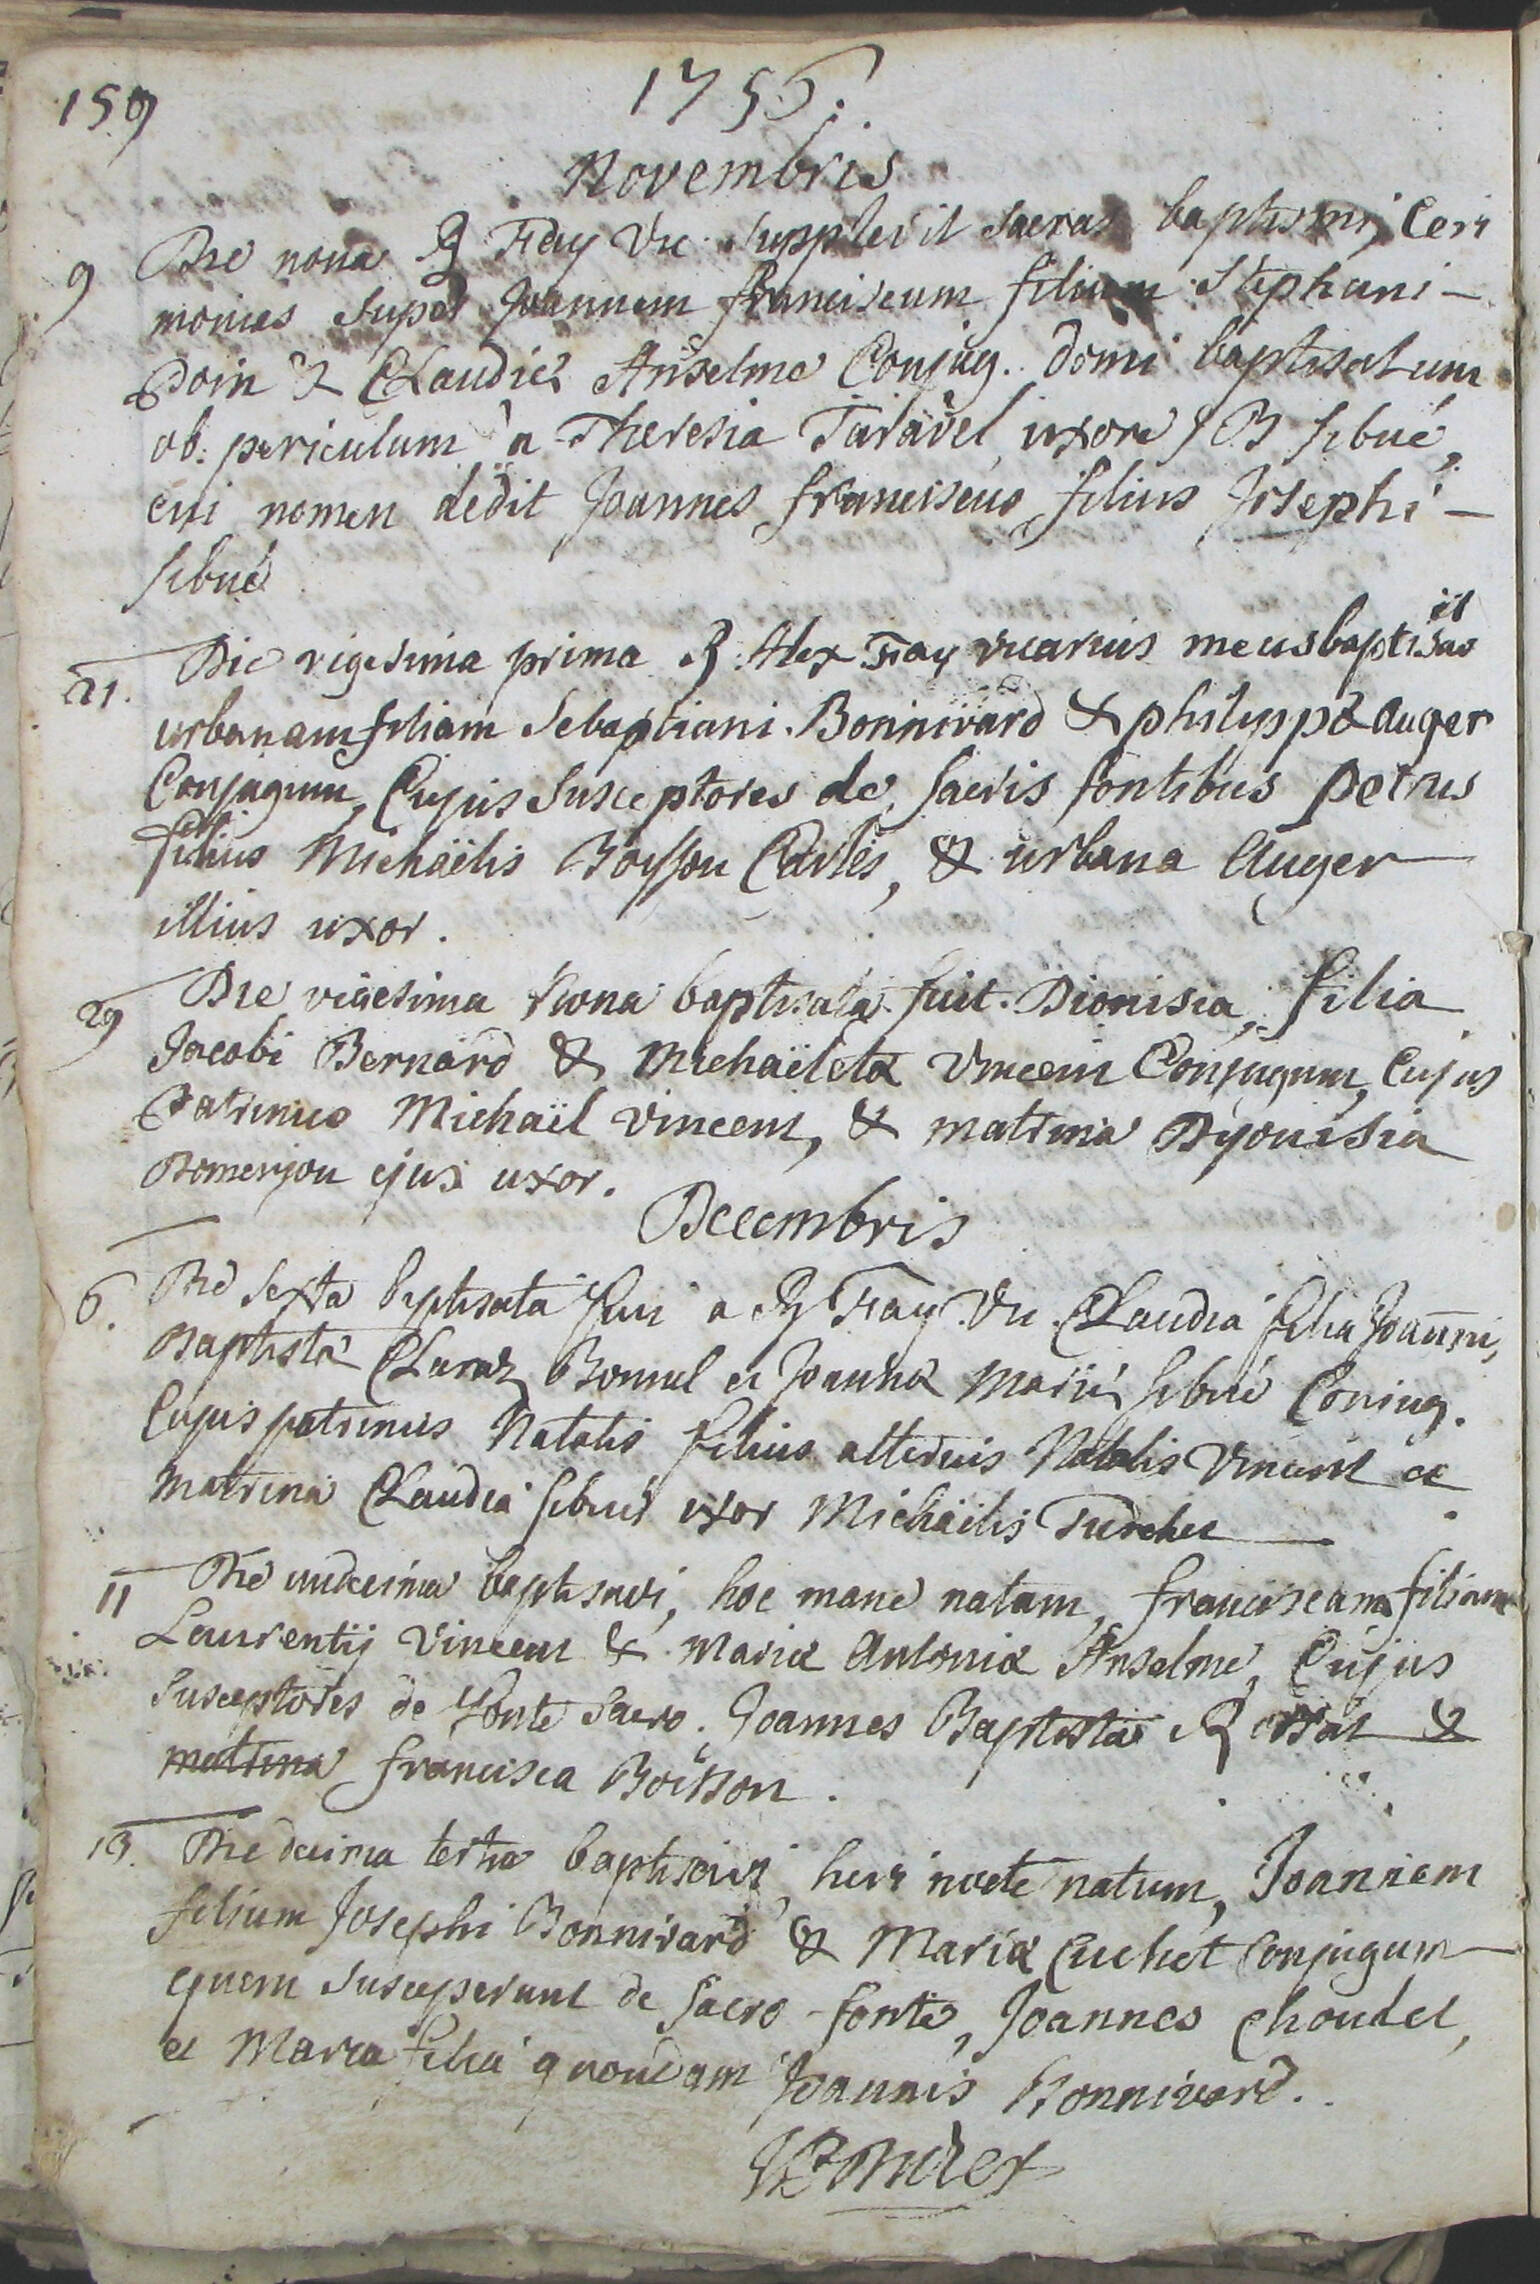 159
1756.
Novembris
9 Die nona R Fray Vic. supplevit sacras baptismi Ceri
monias super Joannem franciscum filium Stephani -
Doin & Claudiæ Anselme Conjug. domi baptisatum
ob periculum a Theresia Taravel uxore J B sibué,
cui nomen dedit Joannes franciscus filius Josephi -
sibué
21. Die vigesima prima R Alex Fray vicarius meus baptisavit
urbanam filiam Sebastiani Bonnivard & philippæ Auger
Conjugum, Cujus susceptores de sacris fontibus petrus
filius Michaëlis Boysson Carles, & urbana Auger
illius uxor.
29 Die vigesima Nona baptisata fuit Dionisia, filia
Jacobi Bernard & Michaëletæ Vincent Conjugum, Cujus
Patrinus Michaël Vincent, & matrina Dyonisia
Bomenjou ejus uxor.
Decembris
6. Die sexta baptisata fuit a R Fray Vic. Claudia filia Joannis,
Baptistæ Claraz Bonnel et Joannæ Mariæ sibué Coniug.
Cujus patrinus Natalis filius alterius Natalis Vincent et
matrina Claudia sibué uxor Michaëlis Turchet
11 Die undecima baptisavi, hoc mane natam, franciscam filiam
Laurentij Vincent & Mariæ Antoniæ Anselme, Cujus
susceptores de fonte sacro Joannes Baptista &
matrina francisca Boisson.
13. Die decima tertia baptisavi, heri nocte natum, Joannem
filium Josephi Bonnivard & Mariæ Cuchet Conjugum
quem susceperunt de sacro fonte, Joannes Choudet,
et Maria filia quondam Joannis Bonnivard.